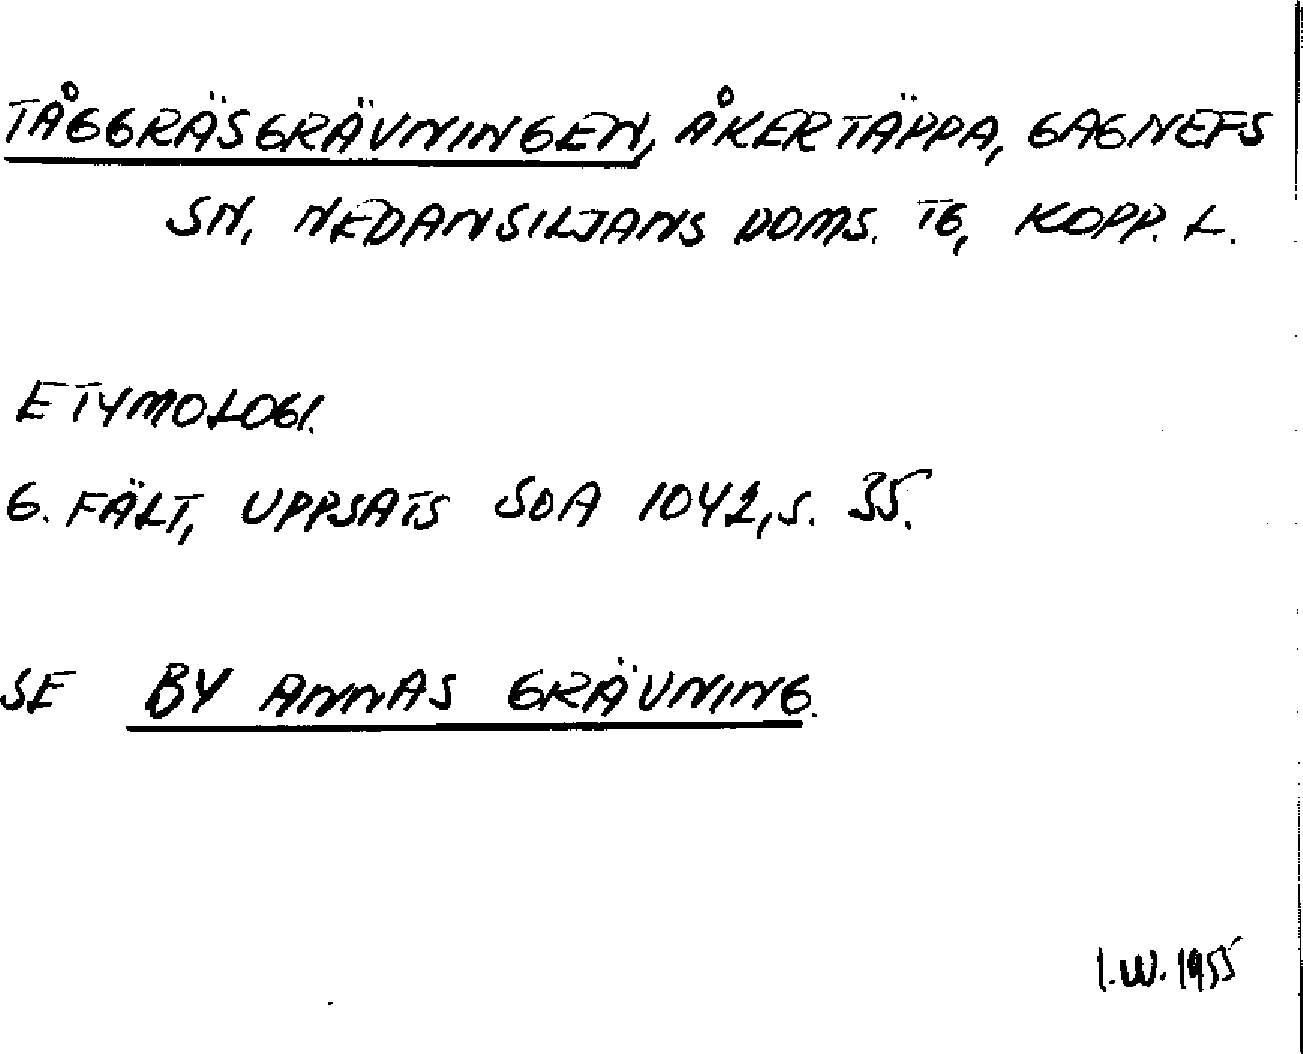 TÅGGRÄSGRÄVNINGEN, ÅKERTÄPPA, GAGNEFS
SN, NEDANSILJANS DOMS. TG, KOPP. L.
ETYMOLOGI.
G. FÄLT, UPPSATS SOA 1042, S. 35.
SE BY ANNAS GRÄVNING.
I.W. 1955